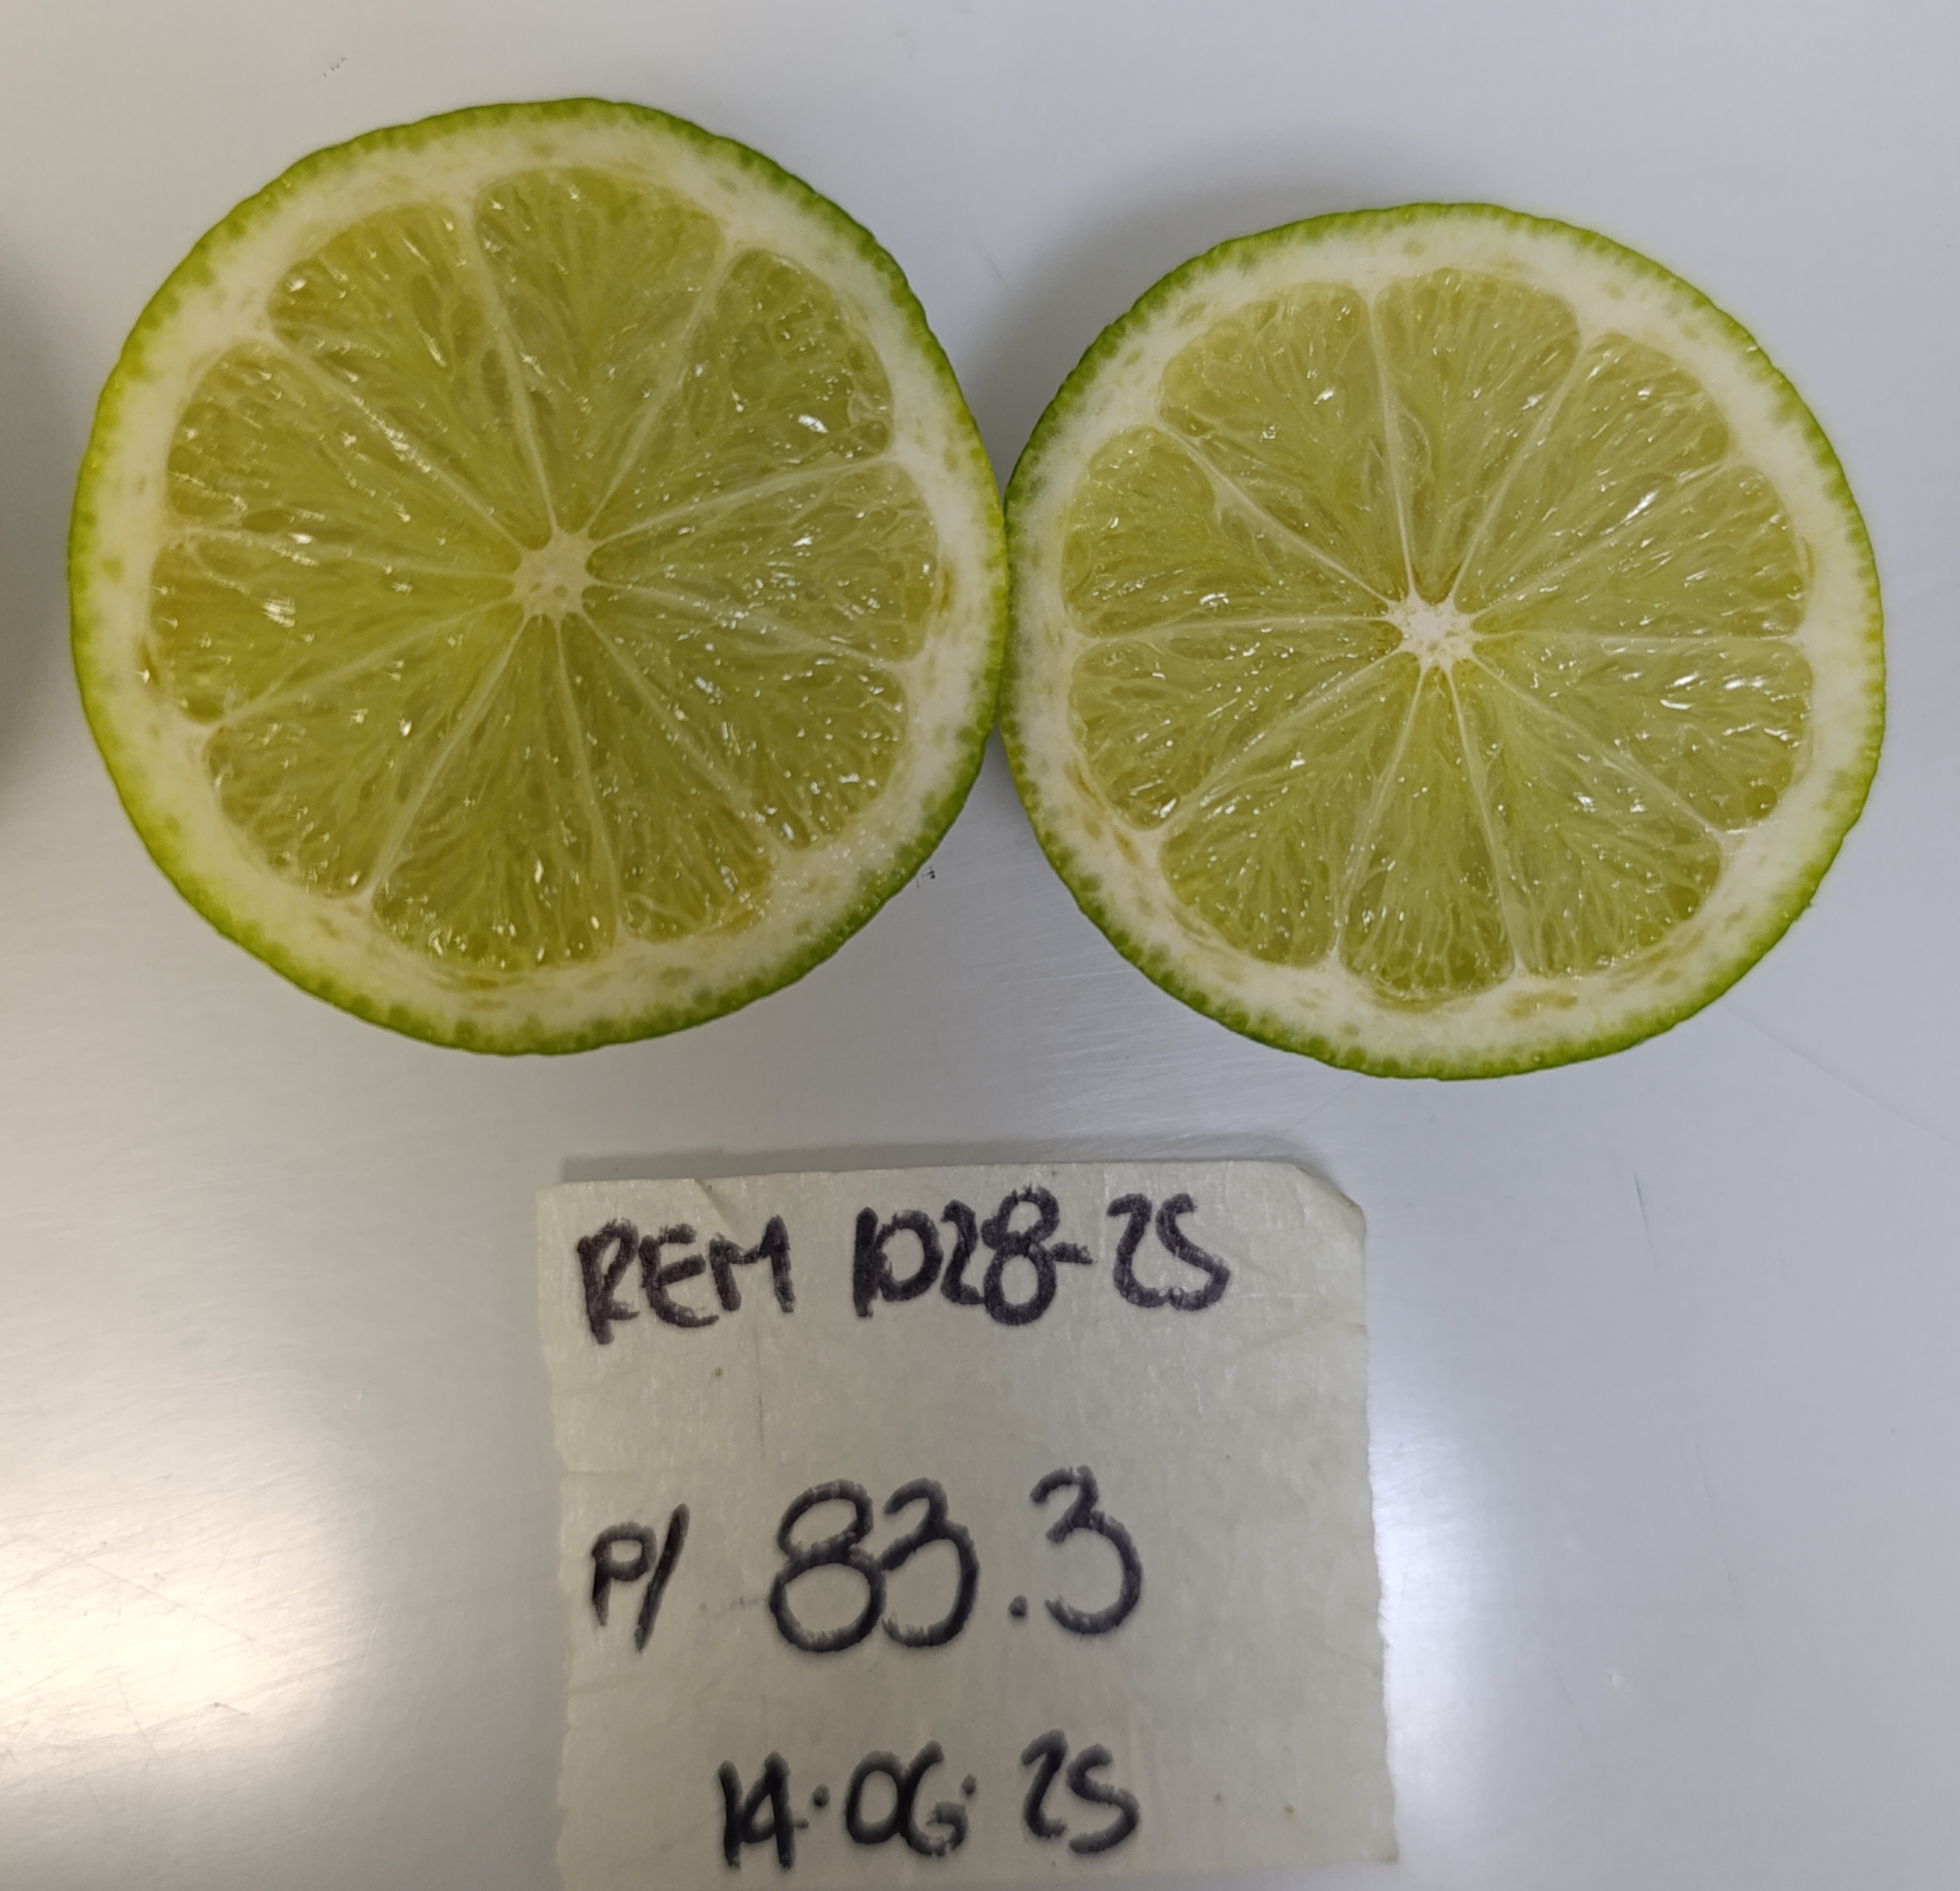 REM 1028-25
P/ 83.3
14.06.25